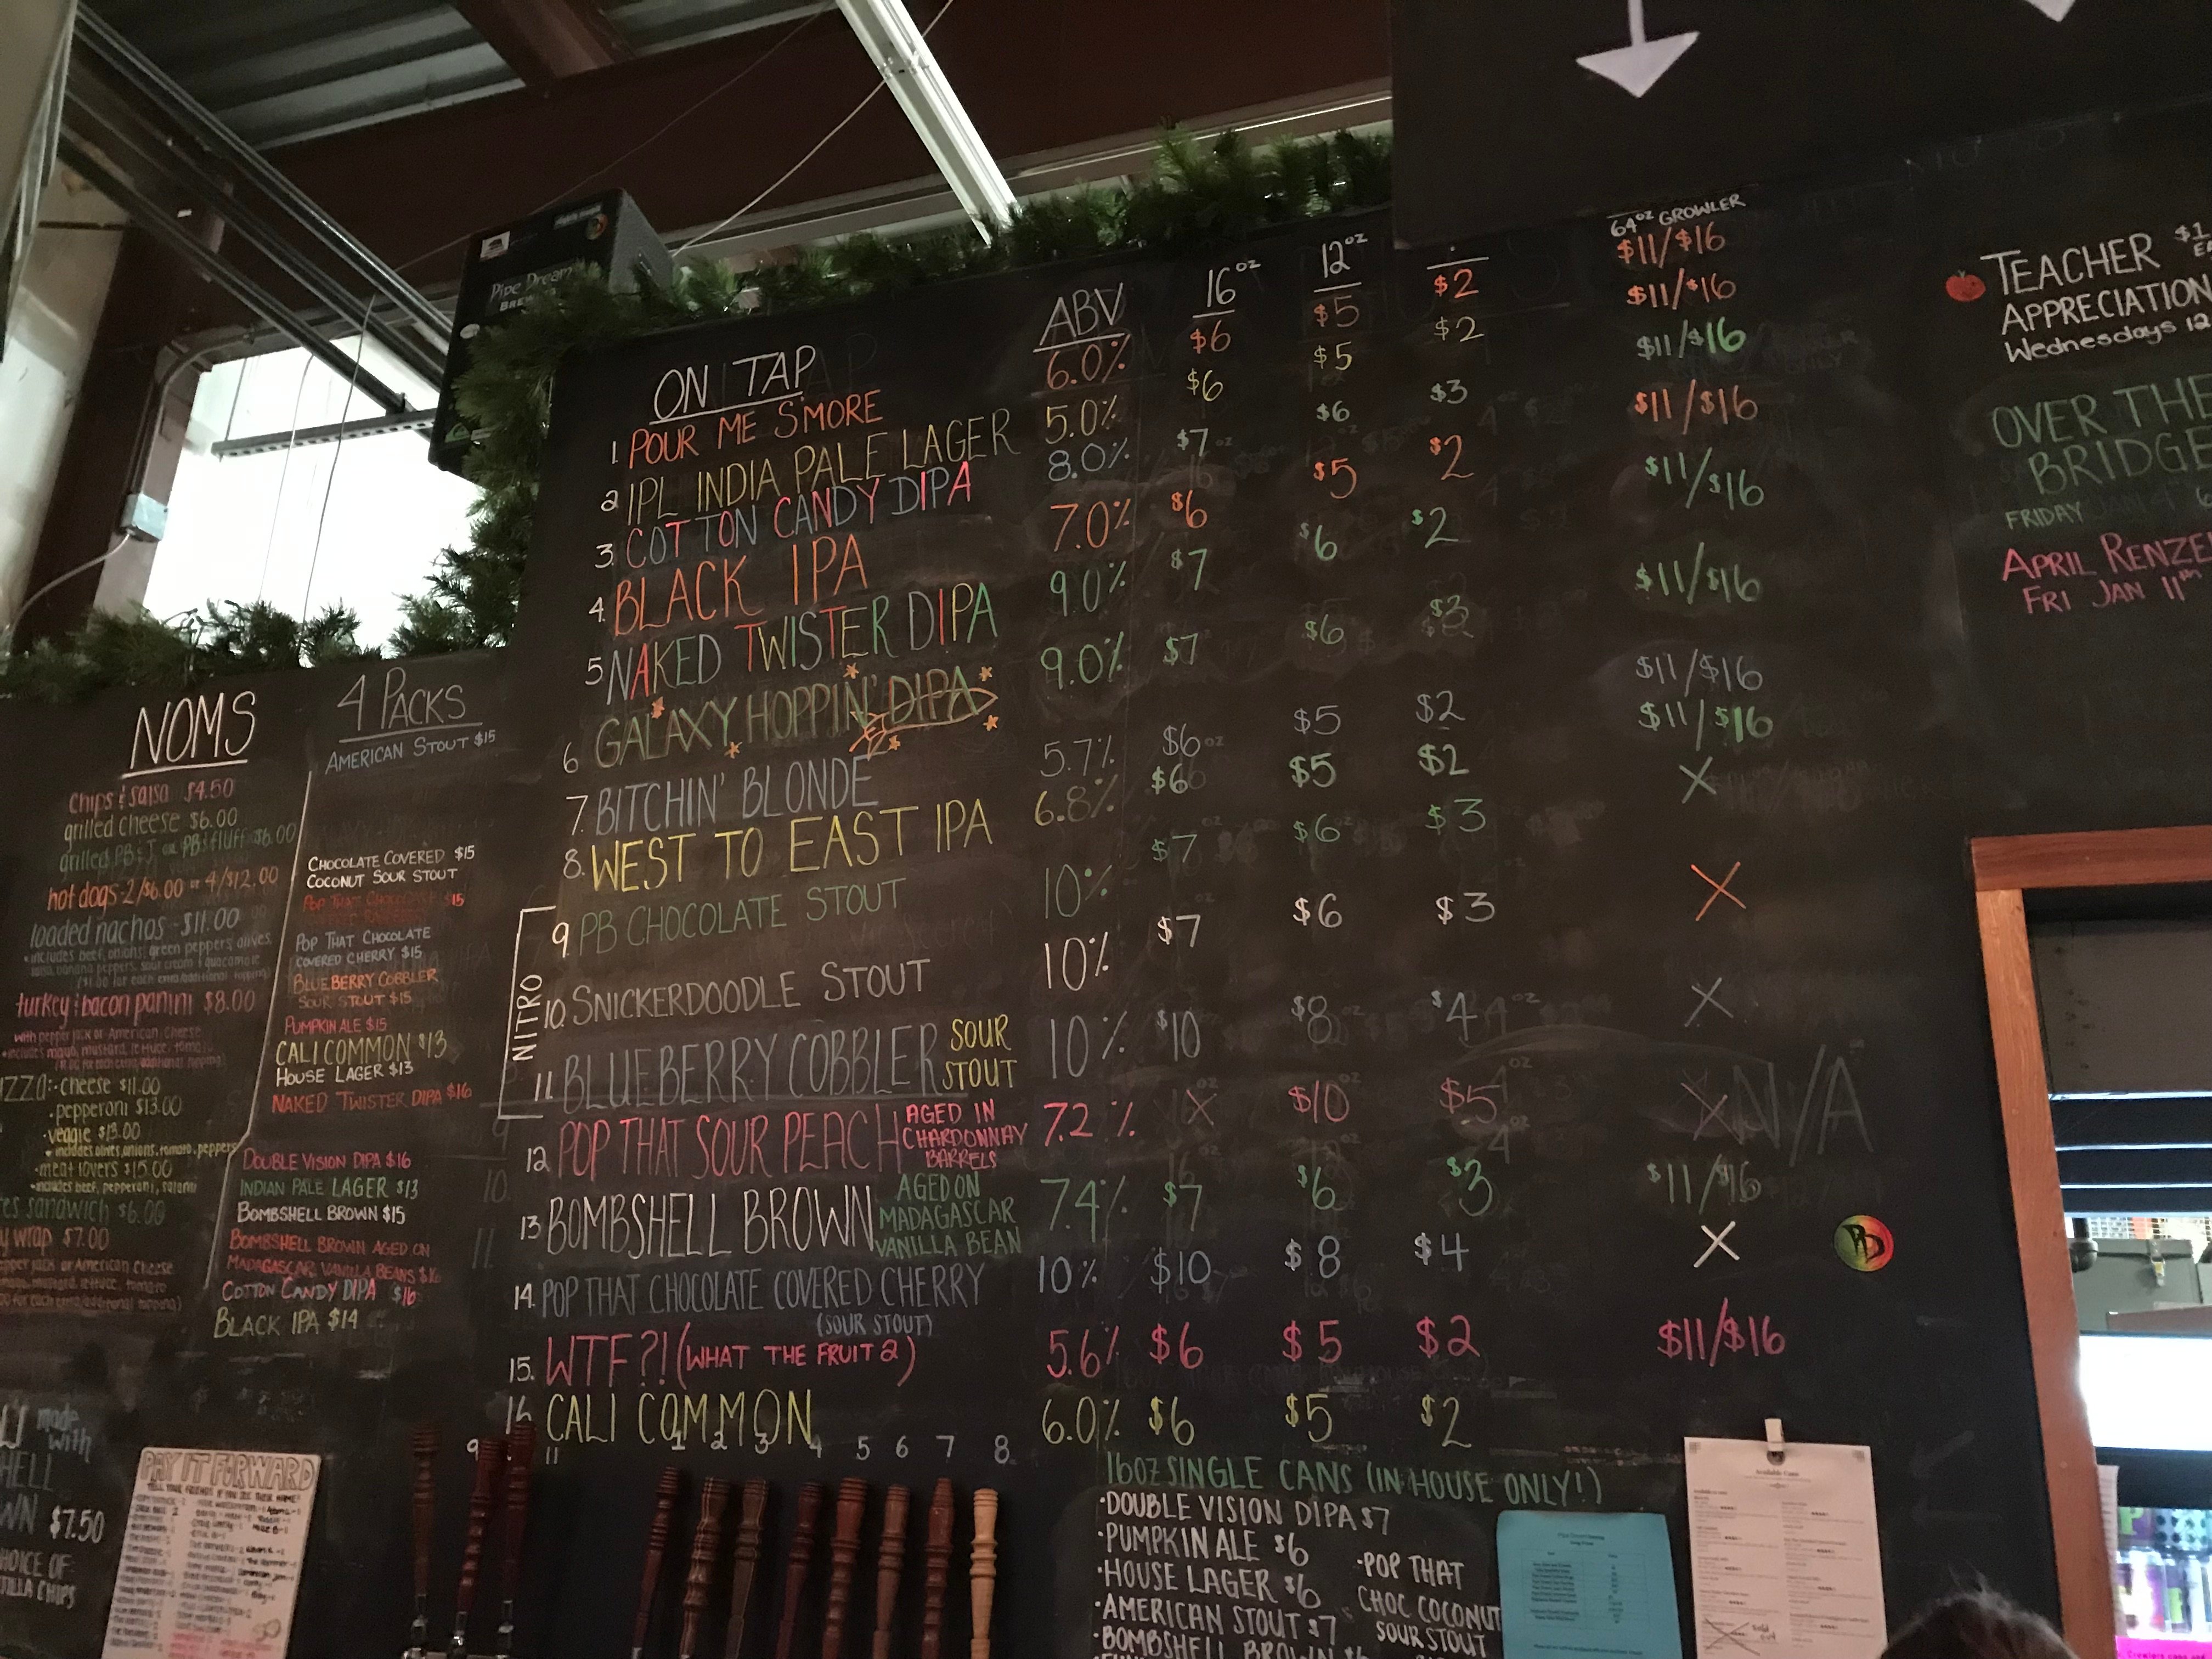 Pipe Dream
NOMS
Chips & salsa $4.50
grilled cheese $6.00
grilled PB&J or PB&fluff $6.00
hot dogs - 2/$6.00 or 4/$12.00
loaded nachos - $11.00
• includes beef, onions, green peppers, olives,
salsa, banana peppers, sour cream & guacamole
turkey & bacon panini $8.00
with pepper jack or American Cheese
• includes mayo, mustard, lettuce, tomato
IZZA: - cheese $11.00
• pepperoni $13.00
• veggie $13.00
• includes olives, onions, tomato, peppers
- meat lovers $15.00
• includes beef, pepperoni, salami
es sandwich $6.00
y wrap $7.00
pper jack or American Cheese
mayo, mustard, lettuce, tomato
made
with
HELL
WN $7.50
HOICE OF:
TILLA CHIPS
4 PACKS
AMERICAN STOUT $15
CHOCOLATE COVERED $15
COCONUT SOUR STOUT
POP THAT CHOCOLATE $15
POP THAT CHOCOLATE
COVERED CHERRY $15
BLUEBERRY COBBLER
SOUR STOUT $15
PUMPKIN ALE $15
CALI COMMON $13
HOUSE LAGER $13
NAKED TWISTER DIPA $16
DOUBLE VISION DIPA $16
INDIAN PALE LAGER $13
BOMBSHELL BROWN $15
BOMBSHELL BROWN AGED ON
MADAGASCAR VANILLA BEANS $16
COTTON CANDY DIPA $16
BLACK IPA $14
PAY IT FORWARD
ON TAP ABV 16oz 12oz 64oz GROWLER
1. POUR ME S'MORE 6.0% $6 $5 $2 $11/$16
2 IPL INDIA PALE LAGER 5.0% $6 $5 $2 $11/$16
3. COTTON CANDY DIPA 8.0% $7 $6 $3 $11/$16
4. BLACK IPA 7.0% $6 $5 $2 $11/$16
5 NAKED TWISTER DIPA 9.0% $7 $6 $2 $11/$16
6 GALAXY HOPPIN' DIPA 9.0% $7 $6 $3 $11/$16
7. BITCHIN' BLONDE 5.7% $6 $5 $2 $11/$16
8. WEST TO EAST IPA 6.8% $6 $5 $2 $11/$16
NITRO
9. PB CHOCOLATE STOUT 10% $7 $6 $3 X
10. SNICKERDOODLE STOUT 10% $7 $6 $3 X
11. BLUEBERRY COBBLER SOUR STOUT 10% $10 $8 $4 X
12 POP THAT SOUR PEACH AGED IN CHARDONNAY BARRELS 7.2% X $10 $5 X N/A
13 BOMBSHELL BROWN AGED ON MADAGASCAR VANILLA BEAN 7.4% $7 $6 $3 $11/$16
14. POP THAT CHOCOLATE COVERED CHERRY 10% $10 $8 $4 X
(SOUR STOUT)
15. WTF?! (WHAT THE FRUIT 2) 5.6% $6 $5 $2 $11/$16
16 CALI COMMON 6.0% $6 $5 $2
9 11 1 2 3 4 5 6 7 8
16oz SINGLE CANS (IN-HOUSE ONLY!)
• DOUBLE VISION DIPA $7
• PUMPKIN ALE $6
• HOUSE LAGER $6
• AMERICAN STOUT $7
• BOMBSHELL BROWN
• POP THAT
CHOC COCONUT
SOUR STOUT
Available Cans
TEACHER $1
APPRECIATION
Wednesdays 12
OVER THE
BRIDGE
FRIDAY JAN 4
APRIL RENZE
FRI JAN 11th
PD